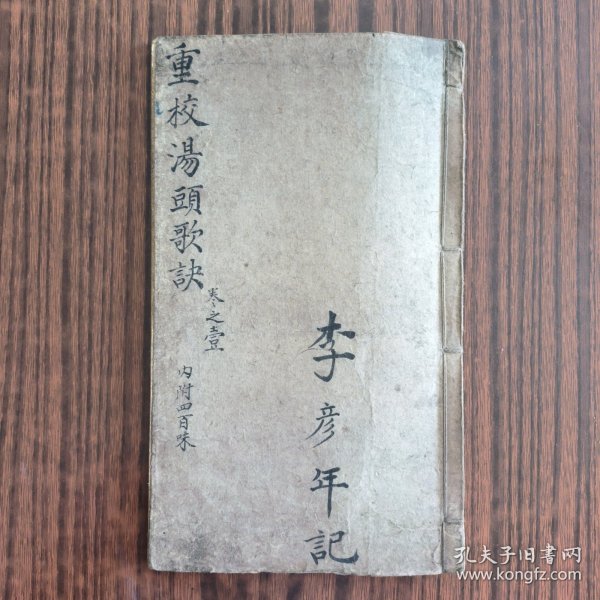 重校湯頭歌訣
卷之壹
內附四百味
李彦年記
孔夫子旧书网
www.kongfz.com